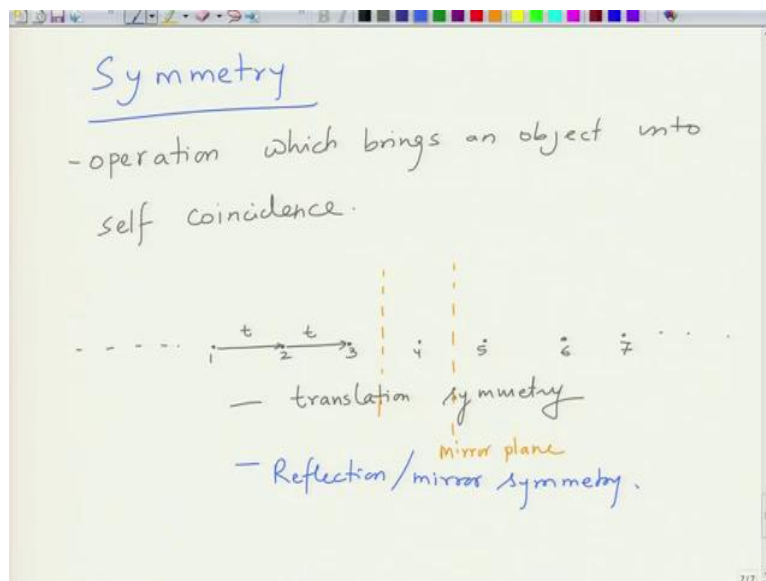 Symmetry
- operation which brings an object into
self coincidence.
t t
1 2 3 4 5 6 7
— translation symmetry
mirror plane
— Reflection/mirror symmetry.